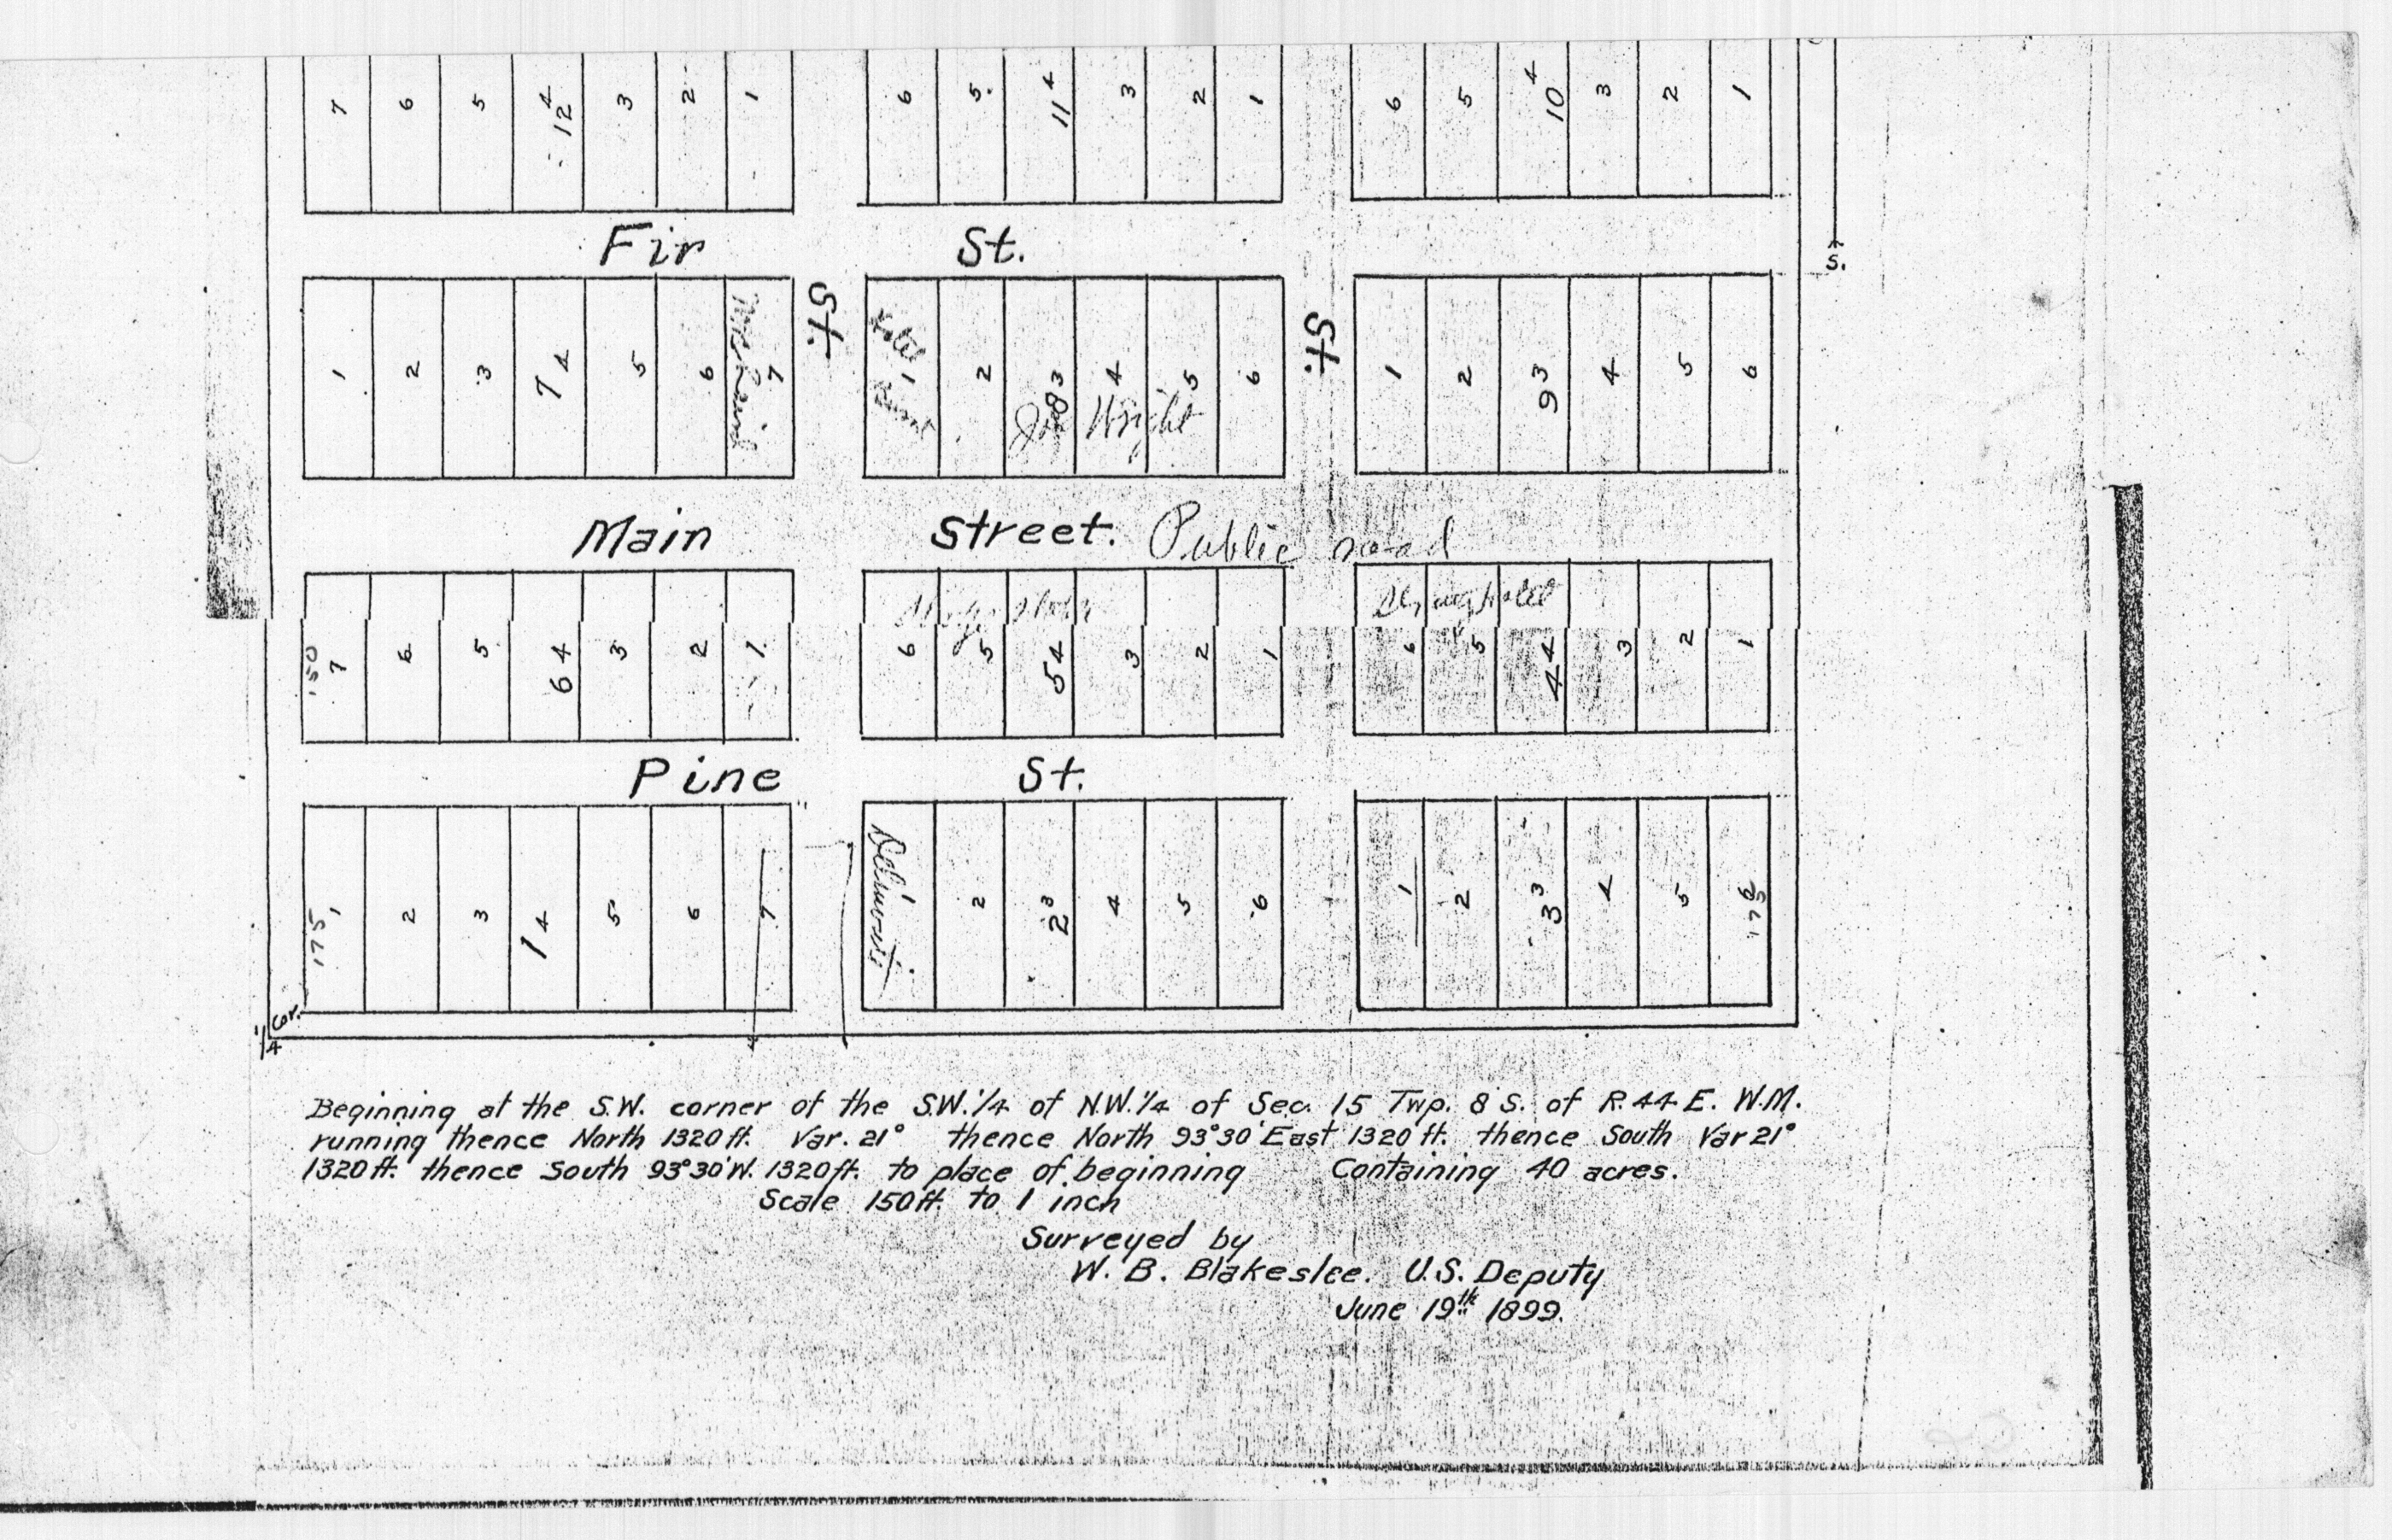 7 6 5 4 3 2 1 6 5. 4 3 2 1 6 5 4 3 2 1
12 11 10
Fir St.
S.
St. St.
1 2 3 4 5 6 7 1 2 3 4 5 6 1 2 3 4 5 6
7 8 9
Joe Wright
Main Street. Public road
7 6 5 4 3 2 1 6 5 4 3 2 1 6 5 4 3 2 1
150 6 5 4
Pine St.
1 2 3 4 5 6 7 1 2 3 4 5 6 1 2 3 4 5 6
175 1 2 3 175
1/4 Cor.
Beginning at the S.W. corner of the S.W. 1/4 of N.W. 1/4 of Sec. 15 Twp. 8 S. of R. 44 E. W.M.
running thence North 1320 ft. Var. 21° thence North 93°30' East 1320 ft. thence South Var 21°
1320 ft. thence South 93°30' W. 1320 ft. to place of beginning Containing 40 acres.
Scale 150 ft. to 1 inch
Surveyed by
W. B. Blakeslee. U.S. Deputy
June 19th 1899.